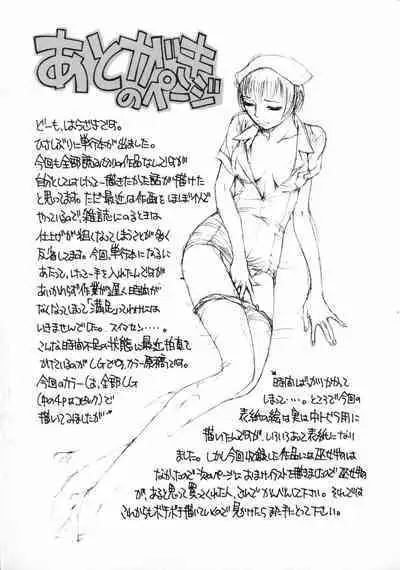 あとがき
のページ
どーも、はらざきです。
ひさしぶりに単行本が出ました。
今回も全部読みきりの作品なんですが
自分としてはけっこー描きたかった話が描けた
と思ってます。ただ最近は作画をほぼ1人で
やっているので、雑誌にのるときは
仕上げが粗くなってしまうことが多く
反省してます。今回、単行本になるに
あたって、けっこー手を入れたんですが
あいかわらず作業が遅く時間が
なくなってしまって「満足」ってわけには
いきませんでした。スイマセン…。
こんな時間不足の状態に最近拍車を
かけているのがCGです、カラー原稿です。
今回のカラーは、全部CG
(中の4Pはコピック)で
描いてみましたが
時間ばっかりかかって
しまって…。ところで今回の
表紙の絵は実は中トビラ用に
描いたんですが、いろいろあって表紙になり
ました。しかし今回収録した作品には巫女物は
なかったのでこのページにおまけイラストを描きましたので巫女物
が、あると思って買ってくれた人、これでかんべんして下さい。それでは
これからもボチボチ描いていくので見かけたらまた手にとって下さい。